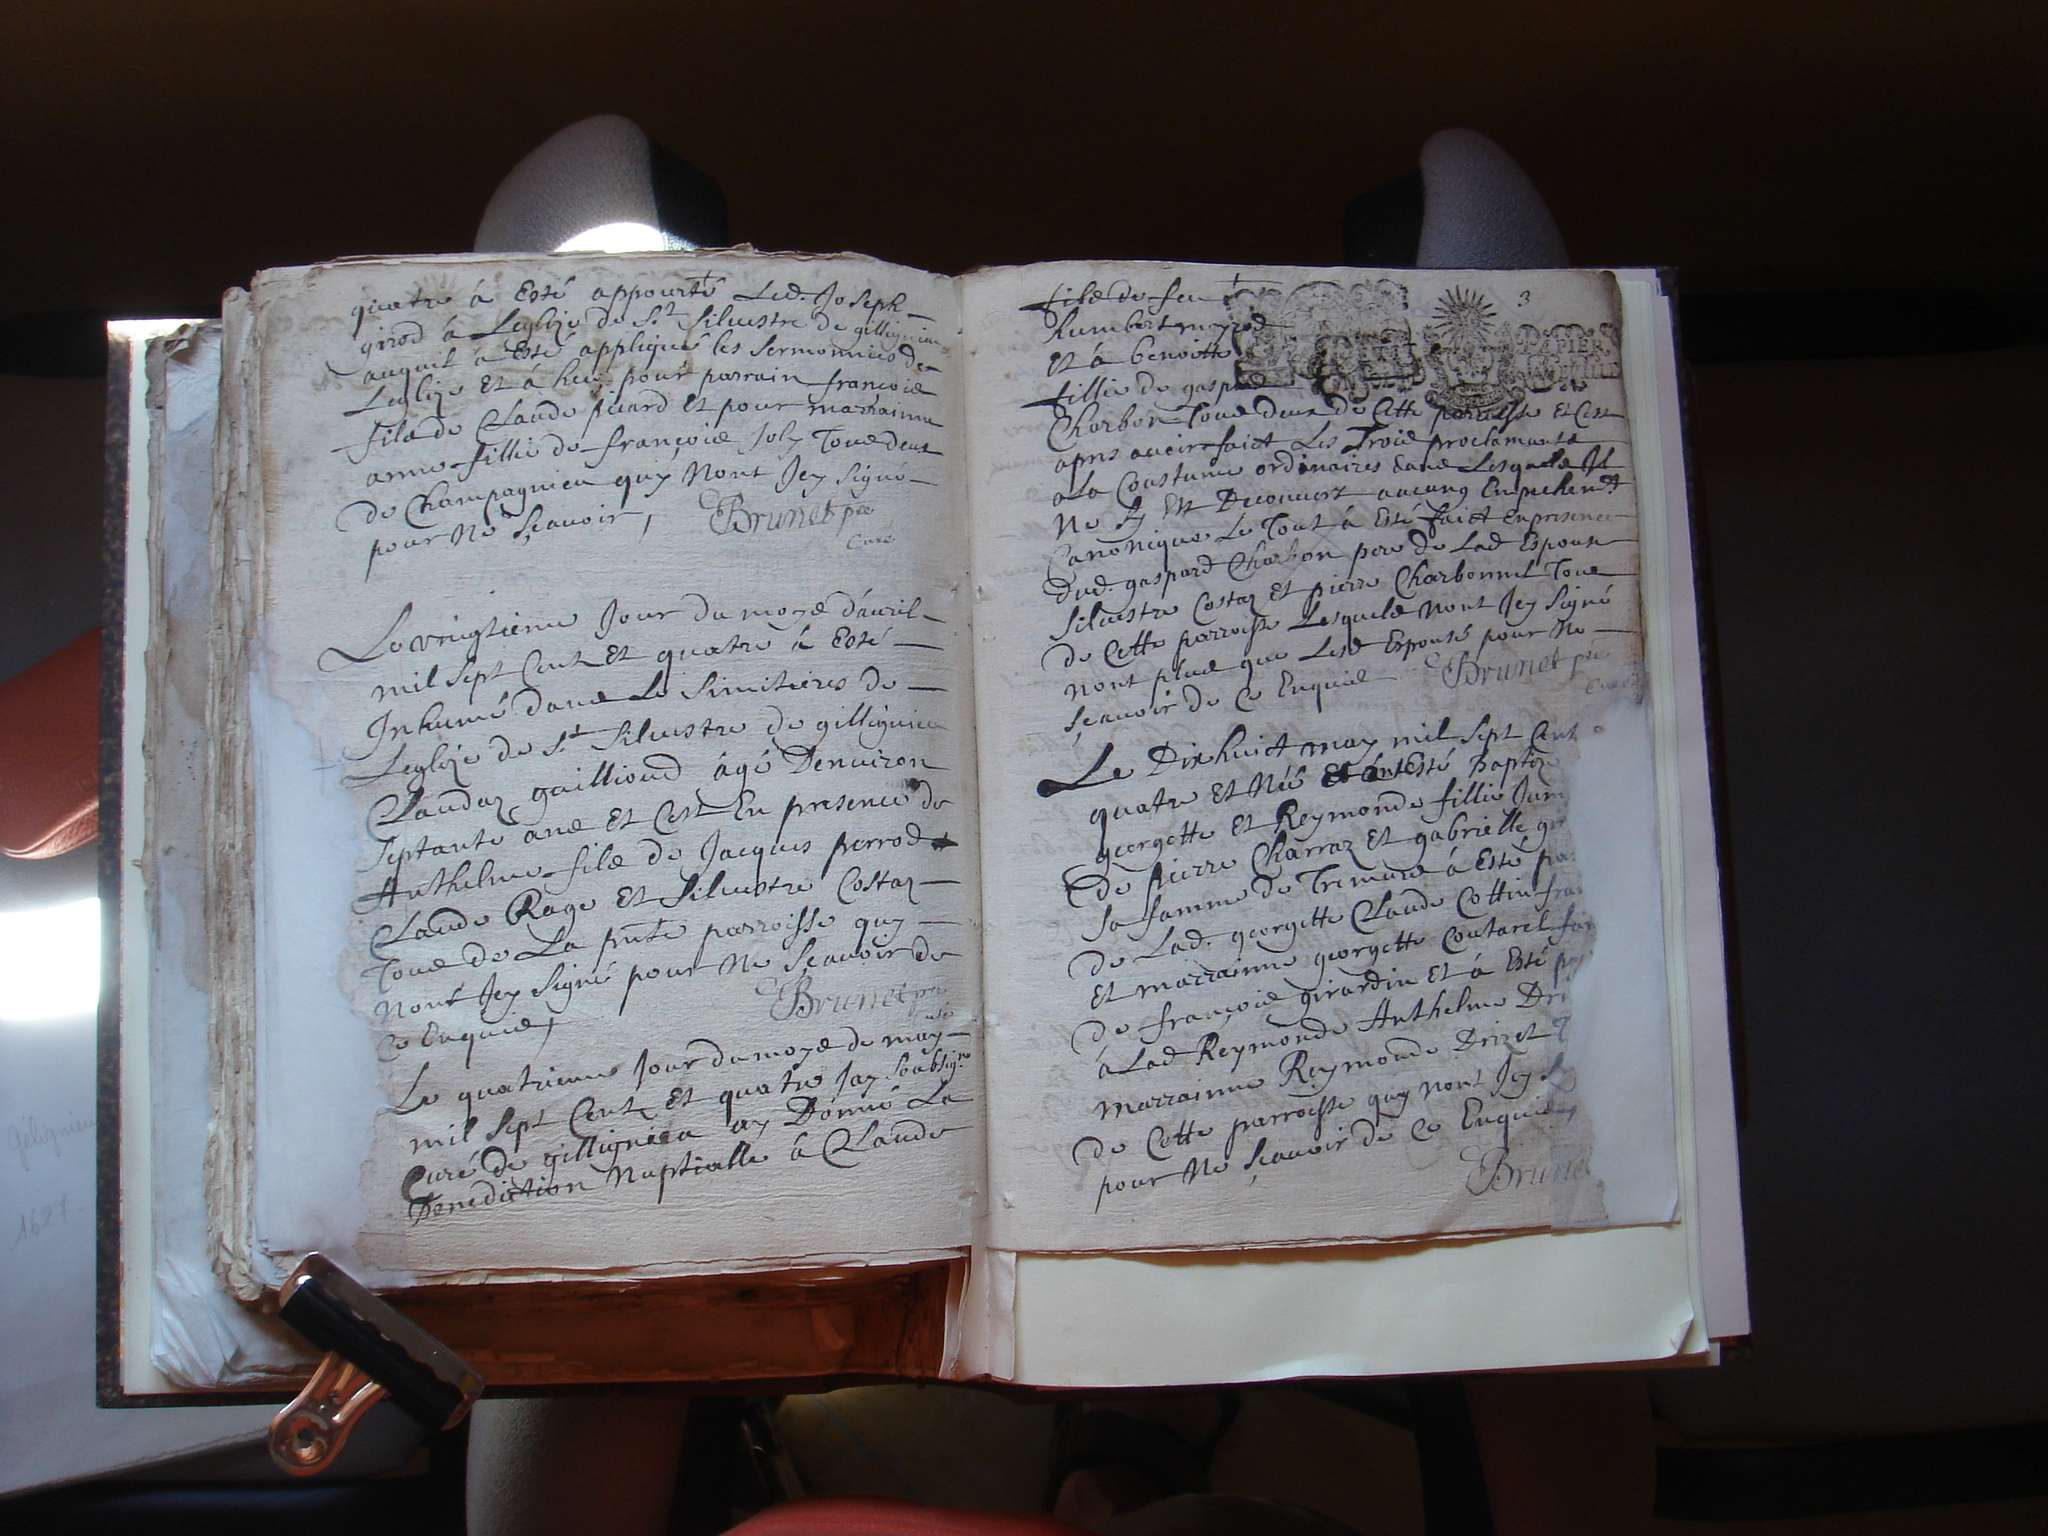 quatre á Esté appourté Led. Joseph
girod á Leglize de St Siluestre de gillignieu
auquil á Esté appliqué les sermonnies de
Leglize Et á heu pour parrain françois
fils de Claude picard Et pour marrainne
anne fillie de françois Joly Tous deux
de Champagnieu quy Nont Jey signé
pour Ne sçauoir,
Brunet pre
Curé
Le vingtieme Jour du moys d'auril
mil sept Cent Et quatre á Esté
Inhumé dans Le Simitieres de
Leglize de St Siluestre de gillignieu
Claudaz gailliond ágé Denuiron
septante ans Et Cest En presence de
Anthelme fils de Jacques perrod
Claude Rage Et Siluestre Costaz
Tous de La pnte parroisse quy
Nont Jey signé pour Ne sçauoir de
Ce Enquis,
Brunet pre
curé
Le quatrieme Jour du moys de may
mil sept Cent Et quatre Jay soubsigné
Curé de gillignieu ay Donné La
Benediction Nuptialle á Claude
fils de feu
3
humbert
Et á benoitte
PAPIER
fillie de gaspard
Charbon Tous deux de Cette parroisse Et Cest
apres auoir faict Les Trois proclamants
a La Coustume ordinaires dans Lesquels Il
Ne sy Est Decouuert aucung Empechemt
Canonique Le Tout á Esté faict En presence
dud. gaspard Charbon pere de Lad Espouse
Siluestre Costaz Et pierre Charbonnel Tous
de Cette parroisse Lesquels Nont Jey signé
Nont plus que Lesd Espousés pour Ne
sçauoir de Ce Enquis
Brunet pre
Curé
Le Dixhuict may mil sept Cent
quatre Et Née Et ont Esté Baptiz
georgette Et Reymonde fillie Jum
de pierre Charraz Et gabrielle
sa famme de Tremurs á Esté par
de Lad. georgette Claude Cottin
Et marrainne georgette Coutarel
de françois girardin Et á Esté
á Lad Reymonde Anthelme
marrainne Reymonde Drizet
de Cette parroisse quy Nont Jey
pour Ne sçauoir de Ce Enquis
Brunet